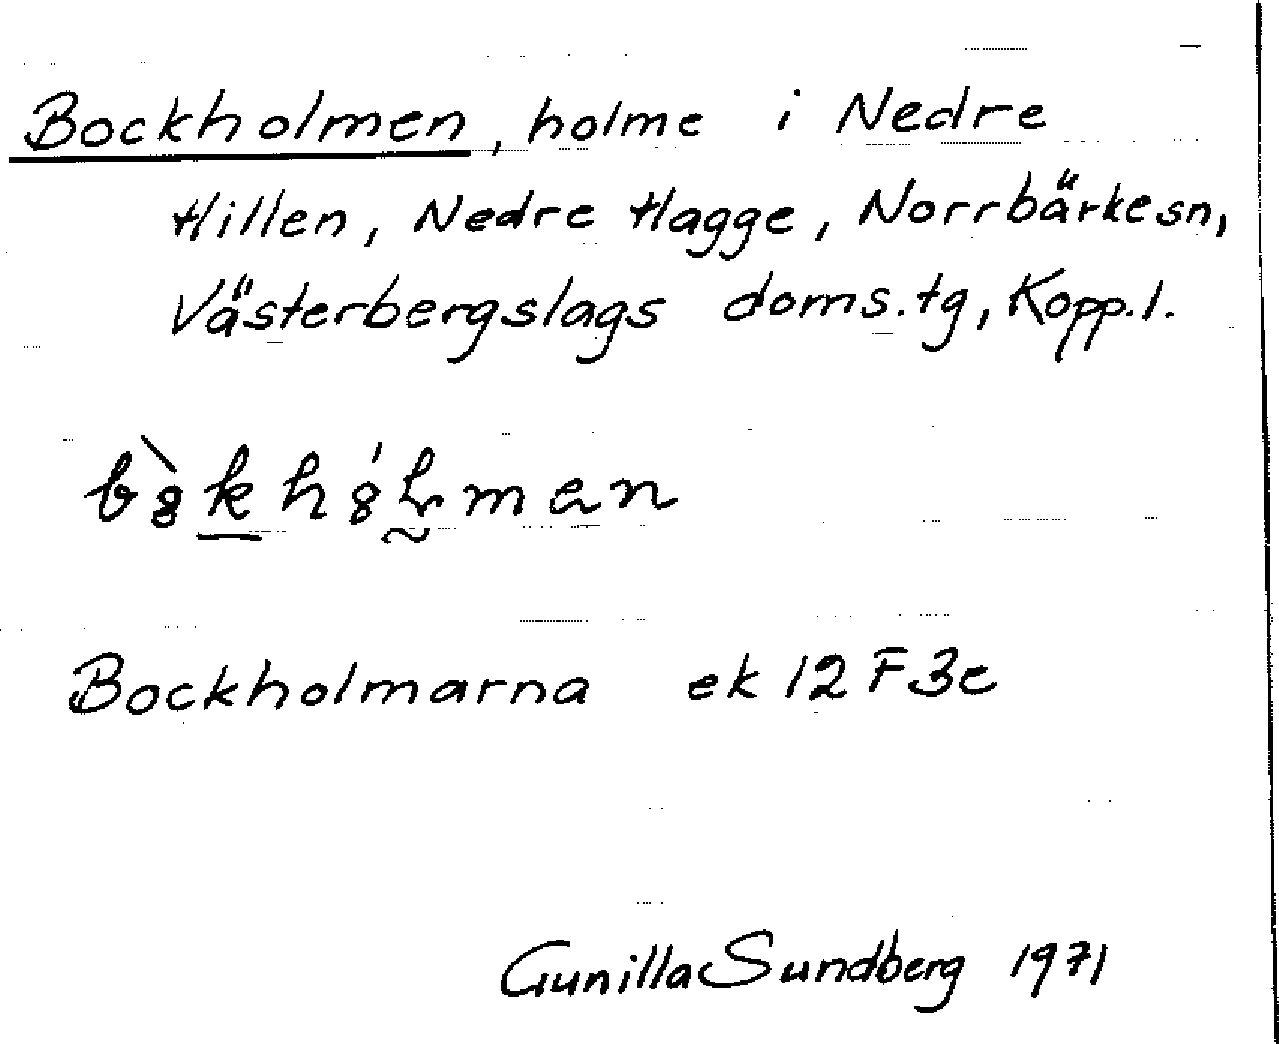 Bockholmen, holme i Nedre
Hillen, Nedre Hagge, Norrbärke sn,
Västerbergslags doms.tg, Kopp.l.
Bockholmarna ek 12 F 3e
Gunilla Sundberg 1971